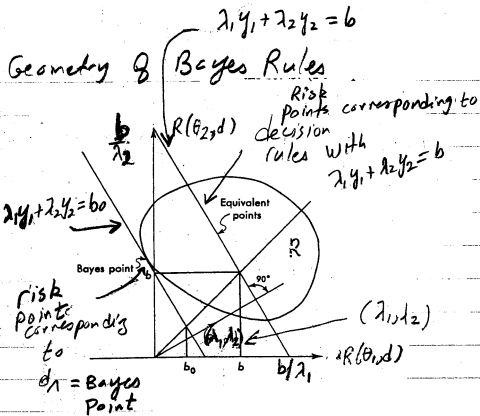 λ₁y₁ + λ₂y₂ = b
Geometry of Bayes Rules
Risk
points corresponding to
decision
rules with
λ₁y₁ + λ₂y₂ = b
b/λ₂
R(θ₂,d)
λ₁y₁ + λ₂y₂ = b₀
Equivalent
points
R
Bayes point
b
90°
risk
points
corresponding
to
d_Λ = Bayes
Point
(λ₁,λ₂)
(λ₁,λ₂)
b₀
b
b/λ₁
R(θ₁,d)